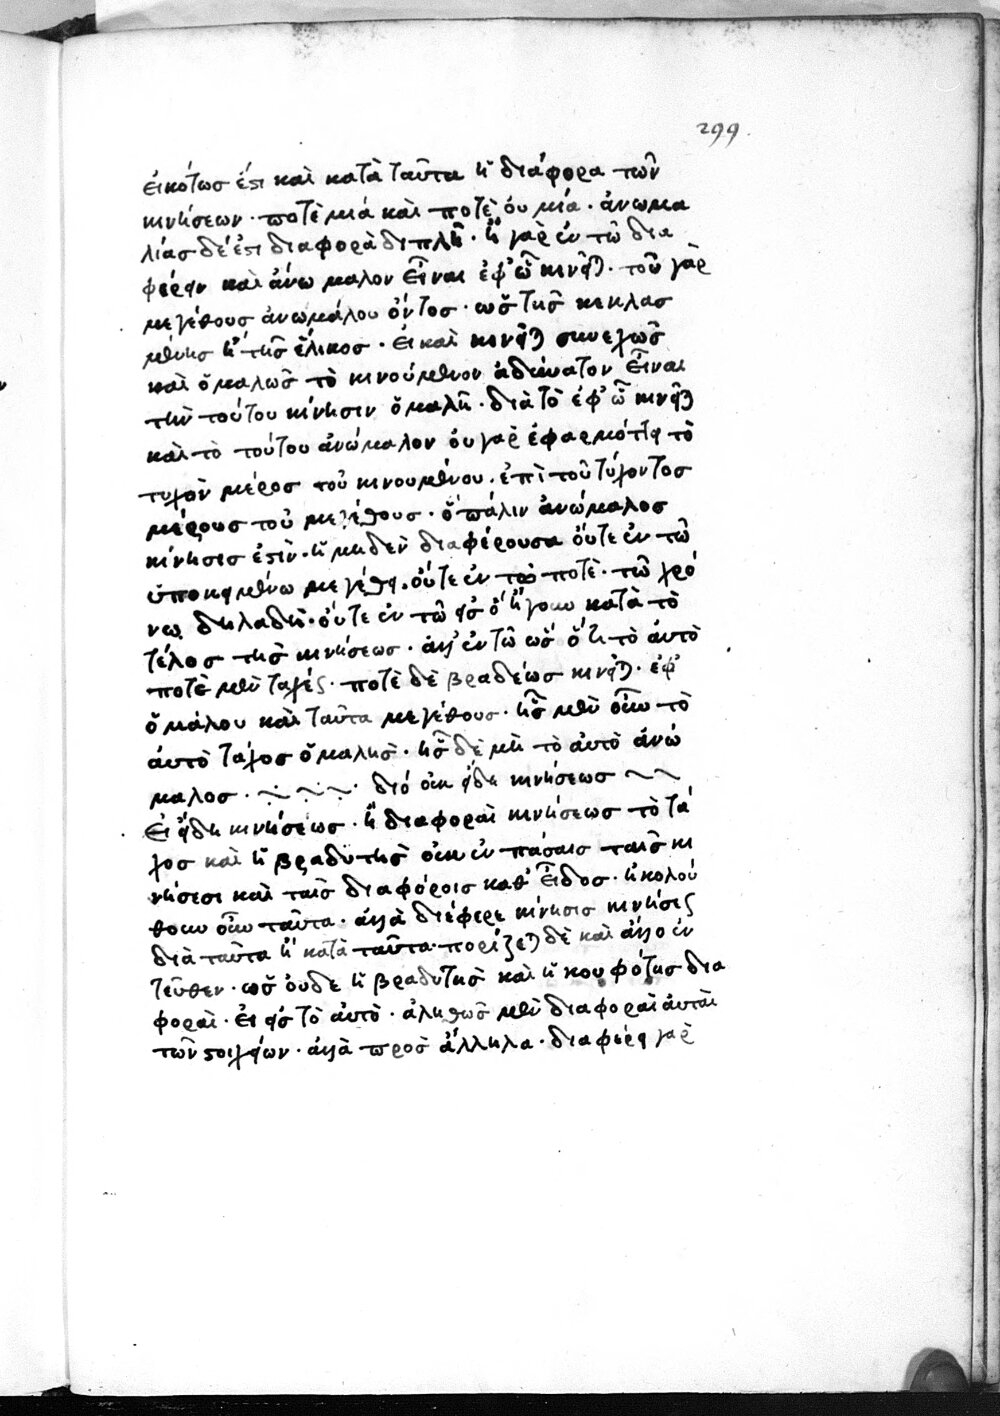 299
εἰκότως ἐστὶ καὶ κατὰ ταῦτα ἡ διάφορα τῶν
κινήσεων · ποτὲ μιά καὶ ποτὲ ὀυ μία · ἀνωμα
λίας δέ ἐστι διαφορὰ διπλῆ · ἢ γὰρ ἐν τῶ δια
φέρειν καὶ ἀνώμαλον εἶναι ἐφ' ὧ κινεῖται · τοῦ γὰρ
μεγέθους ἀνωμάλου ὄντος · ὡς τῆς κεκλασ
μένης ἢ τῆς ἕλικος · εἰ καὶ κινεῖται συνεχῶς
καὶ ὁμαλῶς τὸ κινούμενον ἀδύνατον εἶναι
τὴν τούτου κίνησιν ὁμαλῆ · διὰ τὸ ἐφ' ὧ κινεῖται
καὶ τὸ τούτου ἀνώμαλον ὀυ γὰρ ἐφαρμόττει τὸ
τυχὸν μέρος τοῦ κινουμένου · ἐπὶ τοῦ τύχοντος
μέρους τοῦ μεγέθους · ὁ πάλιν ἀνώμαλος
κίνησις ἐστὶν · ἡ μηδὲν διαφέρουσα ὄυτε ἐν τῶ
ὑποκειμένω μεγέθει · ὄυτε ἐν τῶ ποτὲ · τῶ χρό
νω δηλαδὴ · ὄυτε ἐν τῶ εἰς ὃ ἤγουν κατὰ τὸ
τέλος τῆς κινήσεως · ἀλλ' ἐν τῶ ὡς ὅτι τὸ ἀυτὸ
ποτὲ μὲν ταχέως · ποτὲ δὲ βραδέως κινεῖται · ἐφ'
ὁμάλου καὶ ταῦτα μεγέθους · ἧς μὲν οὖν τὸ
ἀυτὸ τάχος ὁμαλὴς · ἧς δὲ μὴ τὸ αὐτὸ ἀνώ
μαλος · διό οὐκ εἴδη κινήσεως
Εἰ εἴδη κινήσεως · ἢ διαφοραὶ κινήσεως τὸ τά
χος καὶ ἡ βραδυτὴς οὐκ ἐν πάσαις ταῖς κι
νήσεσι καὶ ταῖς διαφόροις κατ' εἶδος · ἠκολού
θουν οὖν ταῦτα · ἀλλὰ διέφερε κίνησις κινήσεως
διὰ ταῦτα ἢ κατὰ ταῦτα · πορίζεται δὲ καὶ ἄλλο ἐν
τεῦθεν · ὡς ὀυδε ἡ βραδυτὴς καὶ ἡ κουφότης δια
φοραὶ · εἰ εἰς τὸ ἀυτὸ · ἀληθῶς μὲν διαφοραὶ ἀυταὶ
τῶν στοιχείων · ἀλλὰ πρὸς ἄλληλα · διαφέρει γὰρ